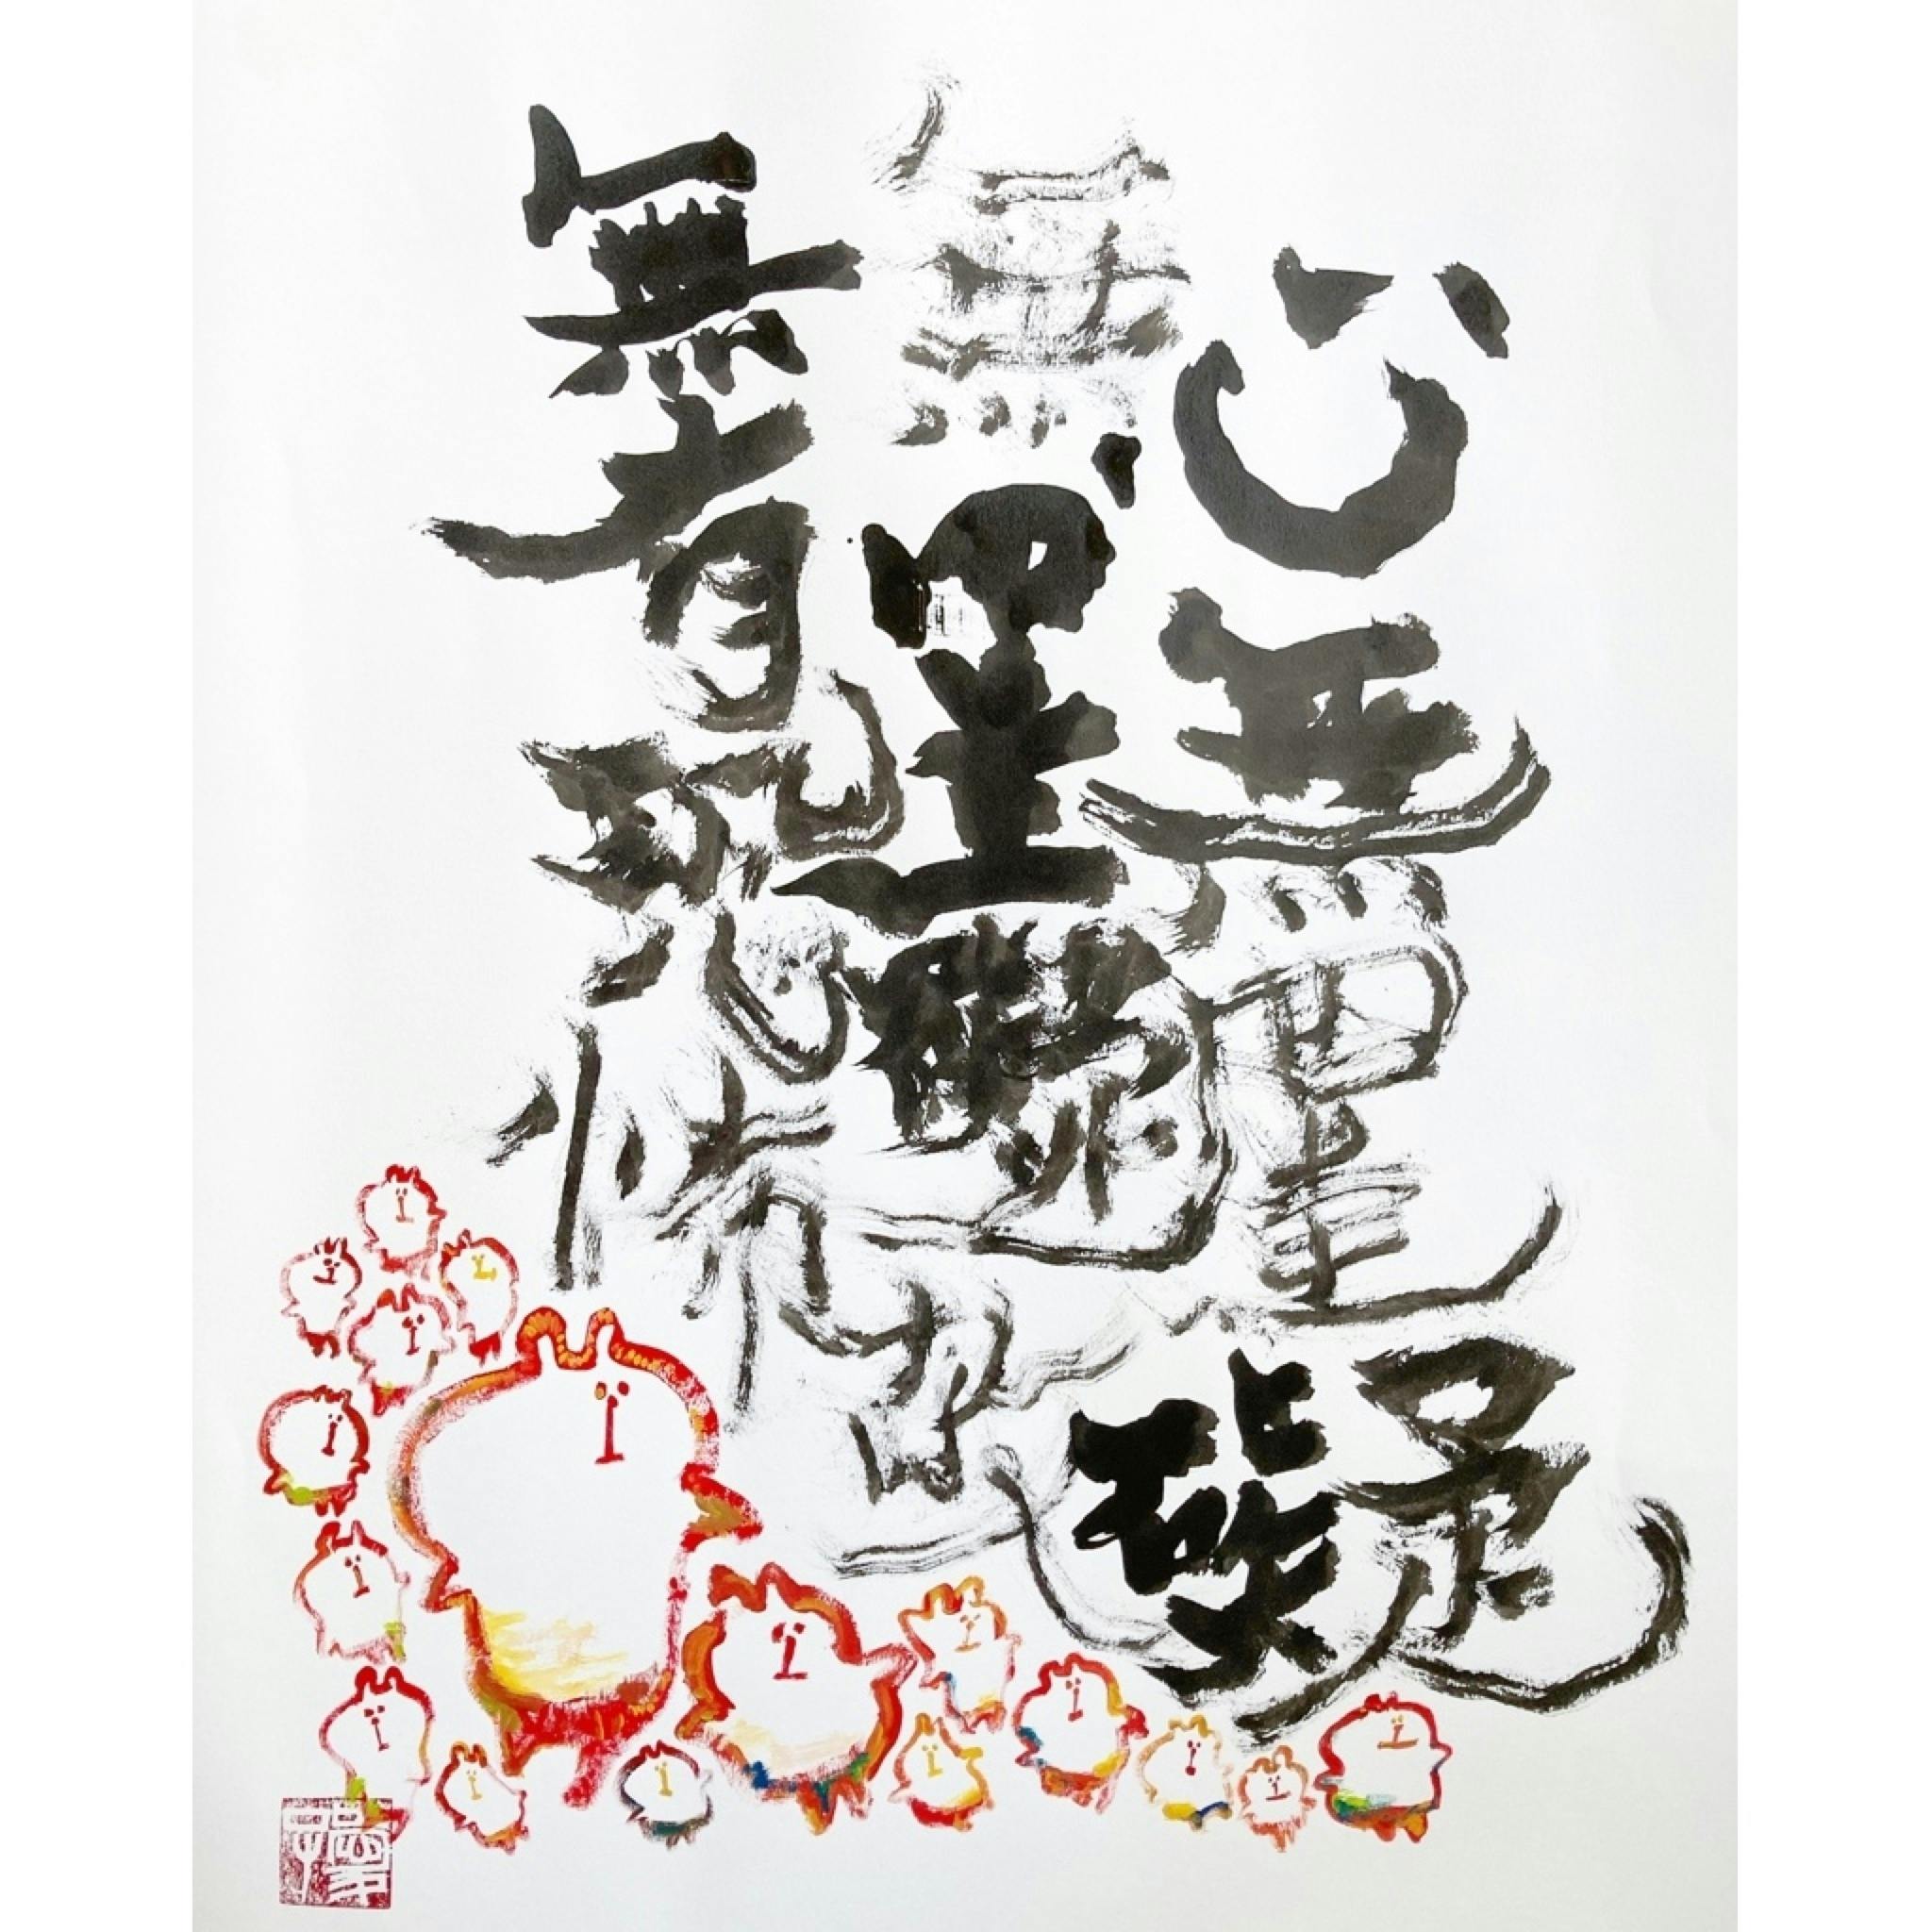 心無罣礙
無罣礙故
無有恐怖